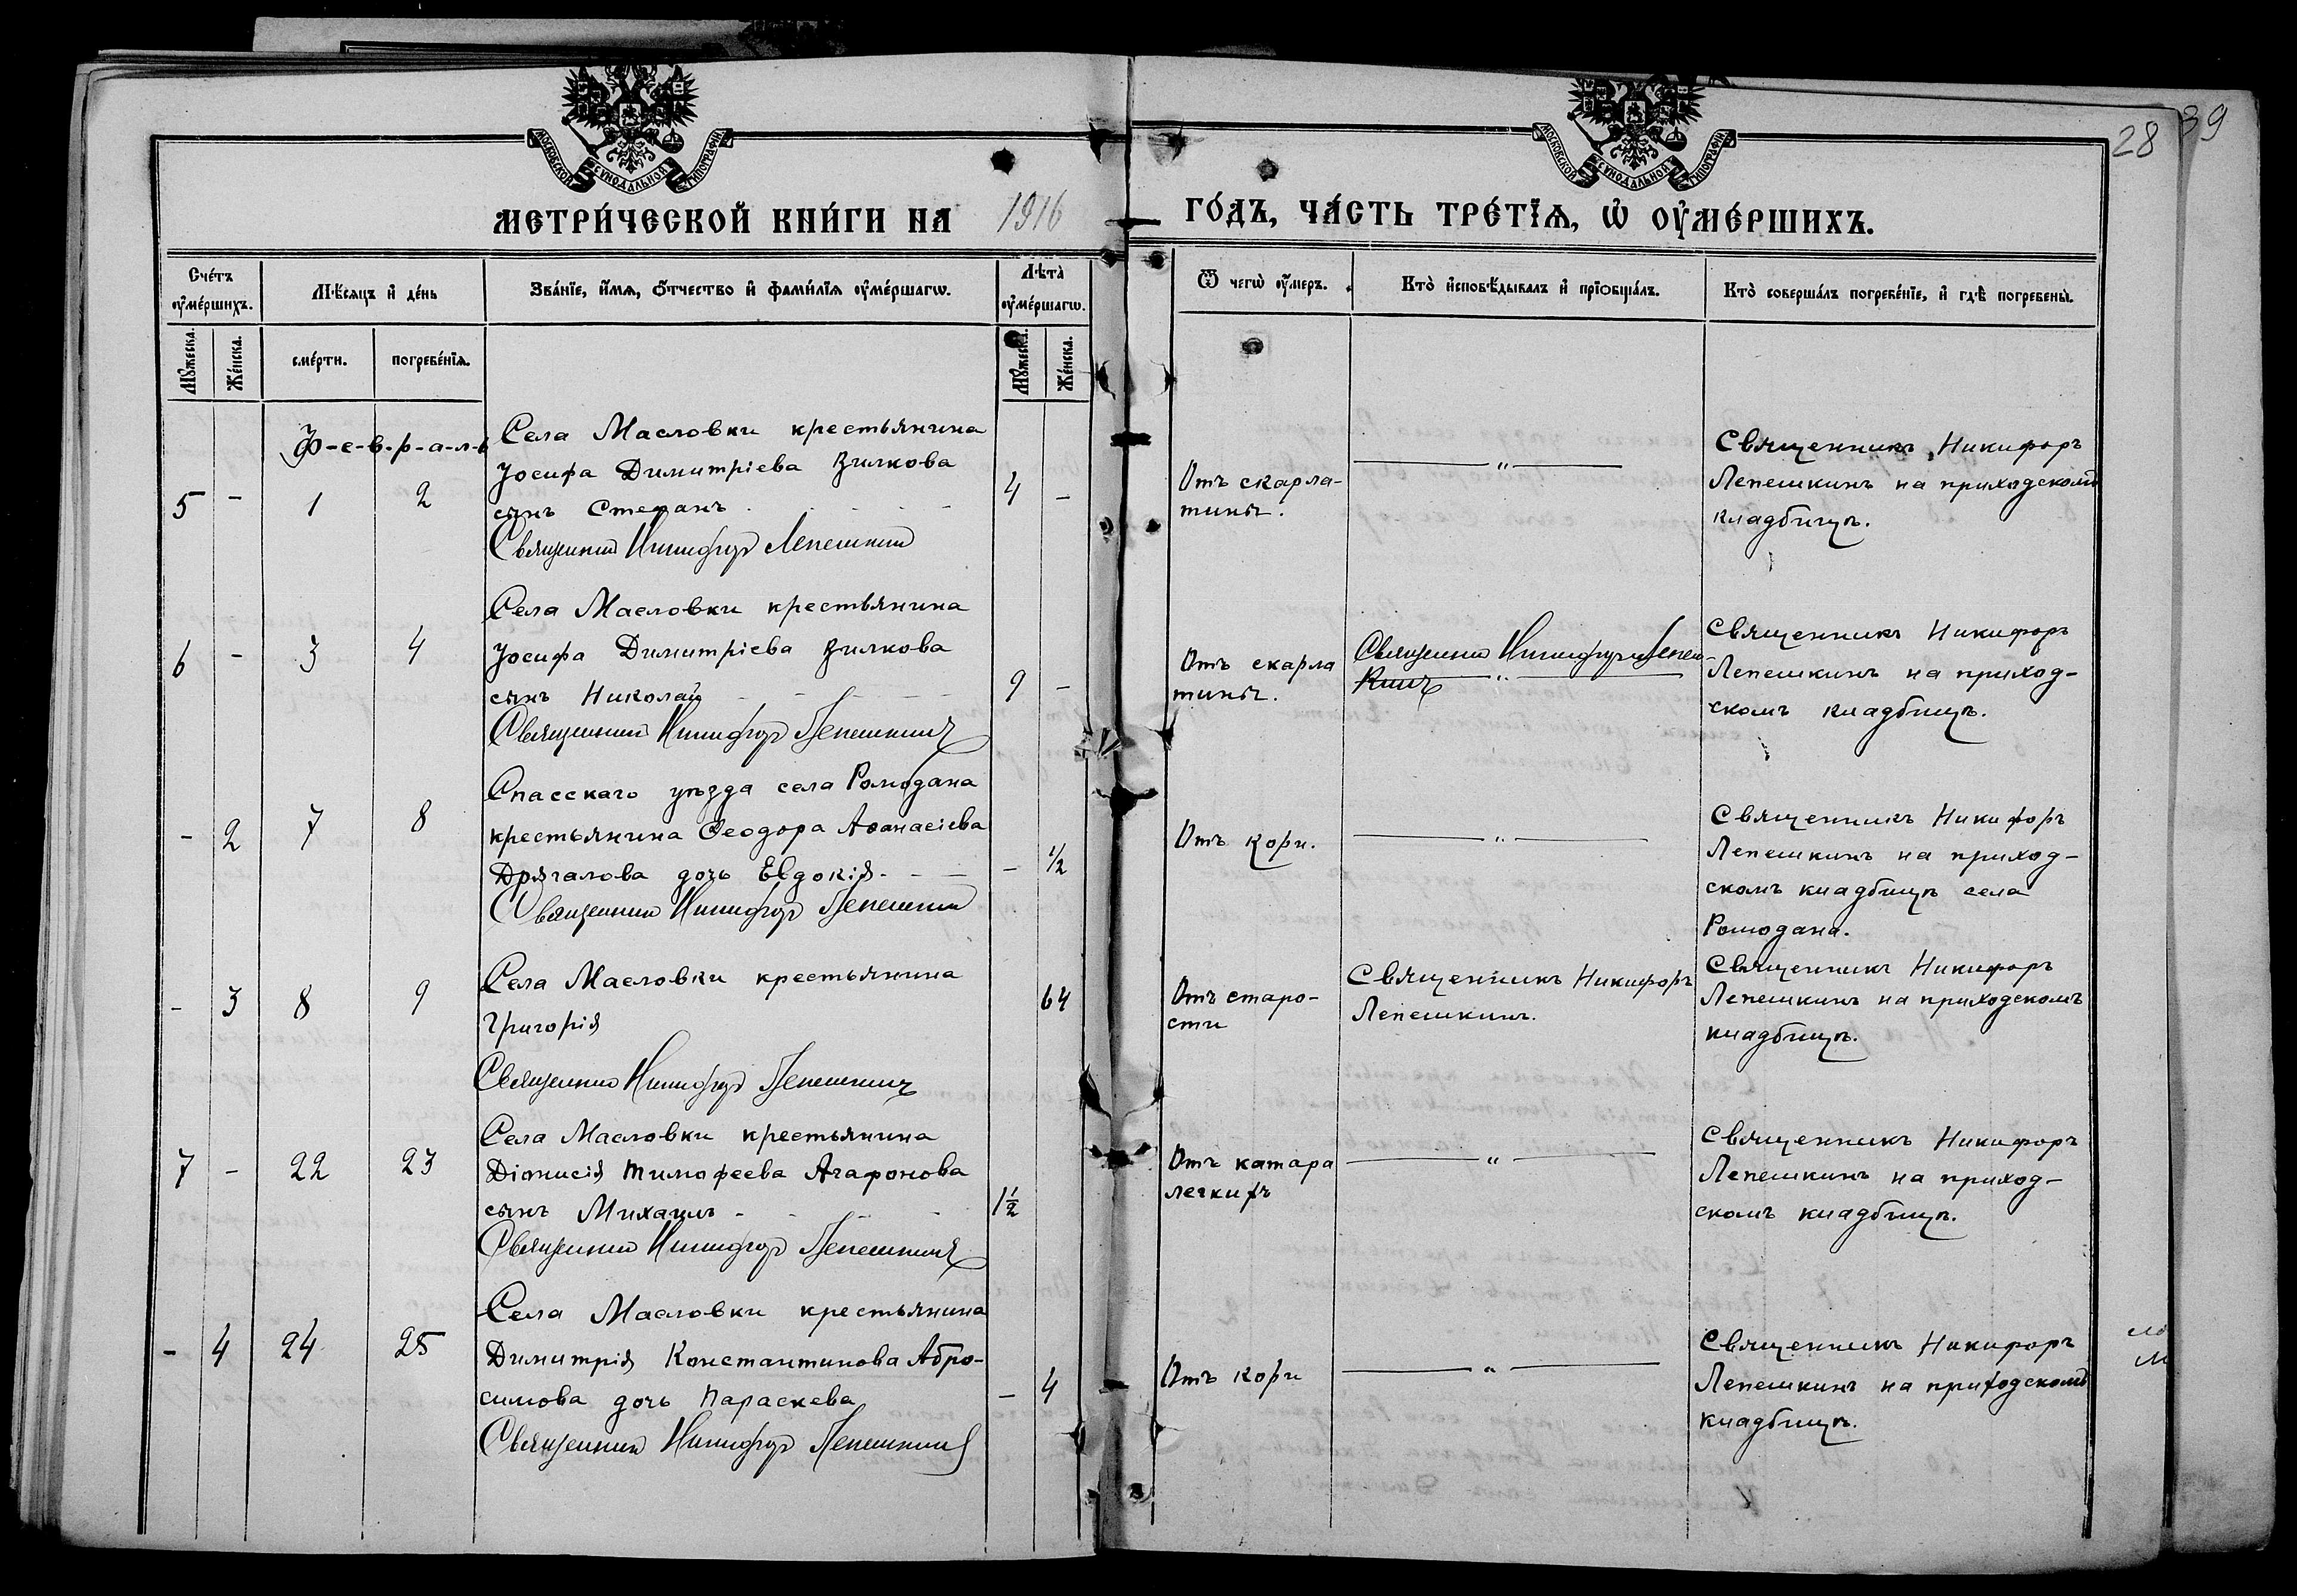 28
39
МОСКОВСКОЙ СѴНОДАЛЬНОЙ ТИПОГРАФІИ
МОСКОВСКОЙ СѴНОДАЛЬНОЙ ТИПОГРАФІИ
МЕТРИ́ЧЕСКОЙ КНИ́ГИ НА 1916
ГО́ДЪ, ЧА́СТЬ ТРЕ́ТЇѦ, Ѡ҆ ОУ҆МЕ́РШИХЪ.
Сче́тъ
оу҆ме́ршихъ.
Мꙋ́жеска.
Же́нска.
Мѣ́сяцъ и҆ де́нь
сме́рти.
погребе́нїѧ.
Зва́нїе, и҆́мѧ, о҆́тчество и҆ фами́лїѧ оу҆ме́ршагѡ.
Лѣта̀
оу҆ме́ршагѡ.
Мꙋ́жеска.
Же́нска.
Ѿ чегѡ̀ оу҆́меръ.
Кто̀ и҆сповѣ́дывалъ и҆ прїѡбща́лъ.
Кто̀ соверша́лъ погребе́нїе, и҆ гдѣ̀ погребены̀.
Ф-е-в-р-а-л-ь
5 - 1 2
Села Масловки крестьянина
Іосифа Димитріева Зилкова
сынъ Стефанъ
Священникъ Никифоръ Лепешкинъ
4 -
Отъ скарла-
тины.
— " —
Священникъ Никифоръ
Лепешкинъ на приходскомъ
кладбищѣ.
6 - 3 4
Села Масловки крестьянина
Іосифа Димитріева Зилкова
сынъ Николай
Священникъ Никифоръ Лепешкинъ
9 -
Отъ скарла
тины.
Священникъ Никифоръ Лепеш-
кинъ — " —
Священникъ Никифоръ
Лепешкинъ на приход-
скомъ кладбищѣ.
- 2 7 8
Спасскаго уѣзда села Ромодана
крестьянина Ѳеодора Аѳанасіева
Дрягалова дочь Евдокія
Священникъ Никифоръ Лепешкинъ
- 1/2
Отъ кори.
— " —
Священникъ Никифоръ
Лепешкинъ на приход-
скомъ кладбищѣ села
Ромодана.
- 3 8 9
Села Масловки крестьянина
Григорія
Священникъ Никифоръ Лепешкинъ
64
Отъ старо-
сти
Священникъ Никифоръ
Лепешкинъ.
Священникъ Никифоръ
Лепешкинъ на приходскомъ
кладбищѣ.
7 - 22 23
Села Масловки крестьянина
Діонисія Тимофеева Агафонова
сынъ Михаилъ
Священникъ Никифоръ Лепешкинъ
1 1/2
Отъ катара
легкихъ
— " —
Священникъ Никифоръ
Лепешкинъ на приход-
скомъ кладбищѣ.
- 4 24 25
Села Масловки крестьянина
Димитрія Константинова Абро-
симова дочь Параскева
Священникъ Никифоръ Лепешкинъ
- 4
Отъ кори
— " —
Священникъ Никифоръ
Лепешкинъ на приходскомъ
кладбищѣ.